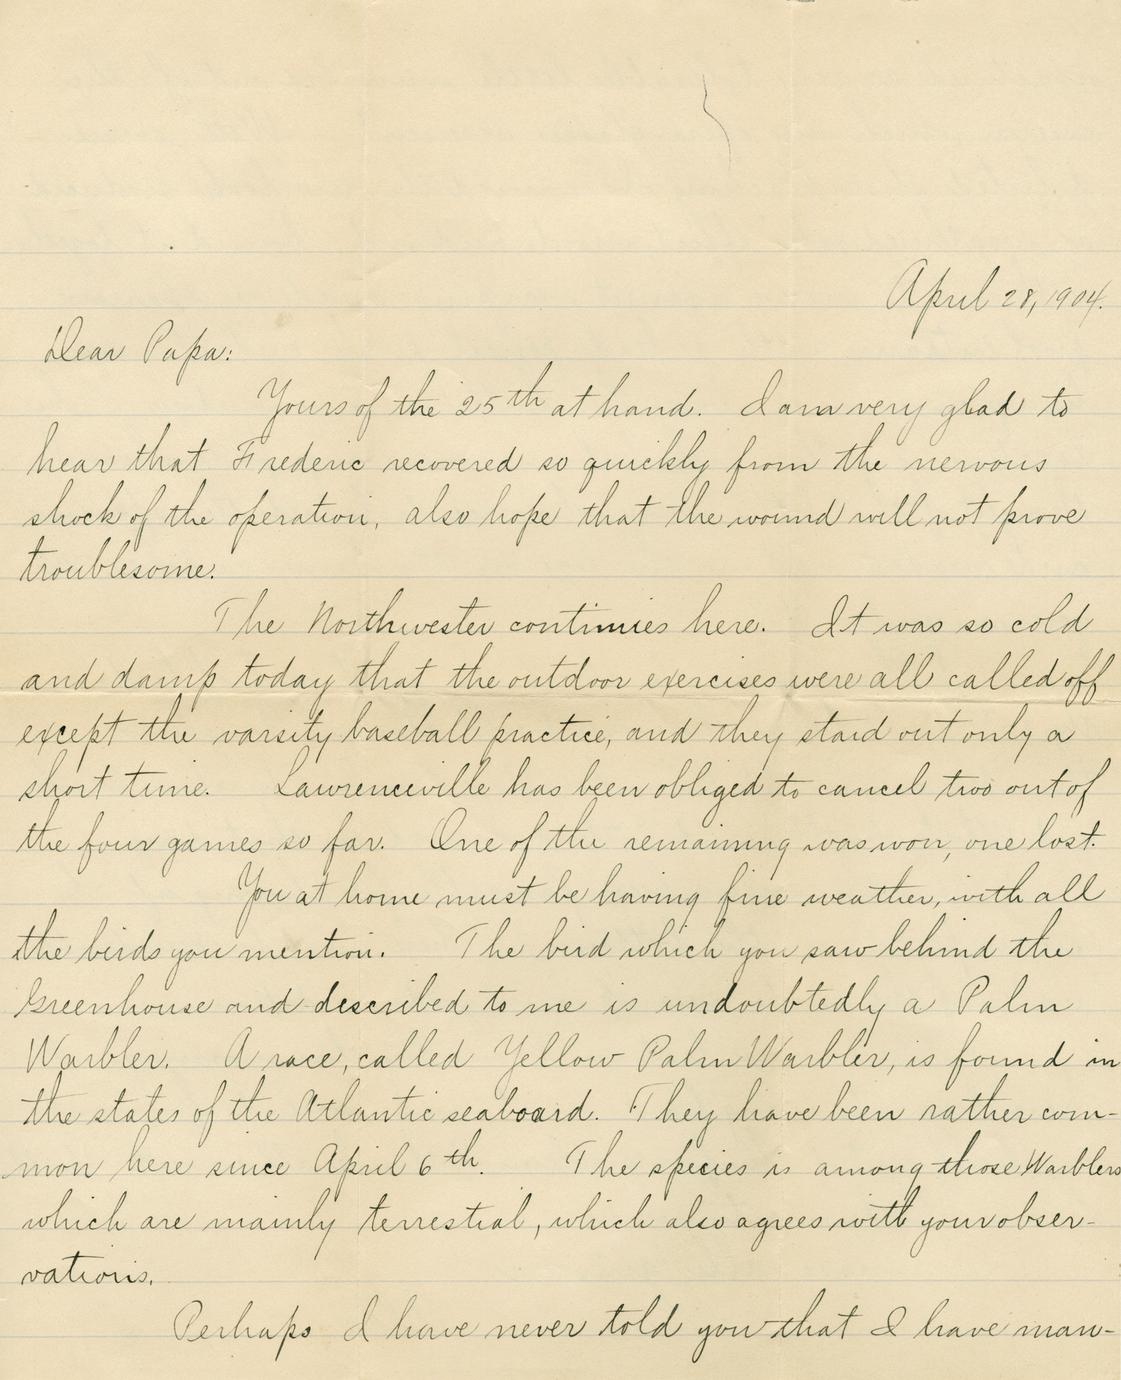 April 28, 1904.
Dear Papa:
Yours of the 25th at hand. I am very glad to
hear that Frederic recovered so quickly from the nervous
shock of the operation, also hope that the wound will not prove
troublesome.
The Northwester continues here. It was so cold
and damp today that the outdoor exercises were all called off
except the varsity baseball practice, and they staid out only a
short time. Lawrenceville has been obliged to cancel two out of
the four games so far. One of the remaining was won, one lost.
You at home must be having fine weather, with all
the birds you mention. The bird which you saw behind the
Greenhouse and described to me is undoubtedly a Palm
Warbler. A race, called Yellow Palm Warbler, is found in
the states of the Atlantic seaboard. They have been rather com-
mon here since April 6th. The species is among those Warblers
which are mainly terrestial, which also agrees with your obser-
vations.
Perhaps I have never told you that I have man-